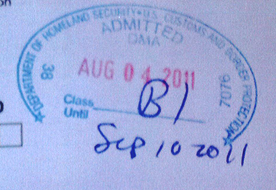 DEPARTMENT OF HOMELAND SECURITY • U.S. CUSTOMS AND BORDER PROTECTION
ADMITTED
OMA
38
AUG 04 2011
7076
Class B1
Until Sep 10 2011